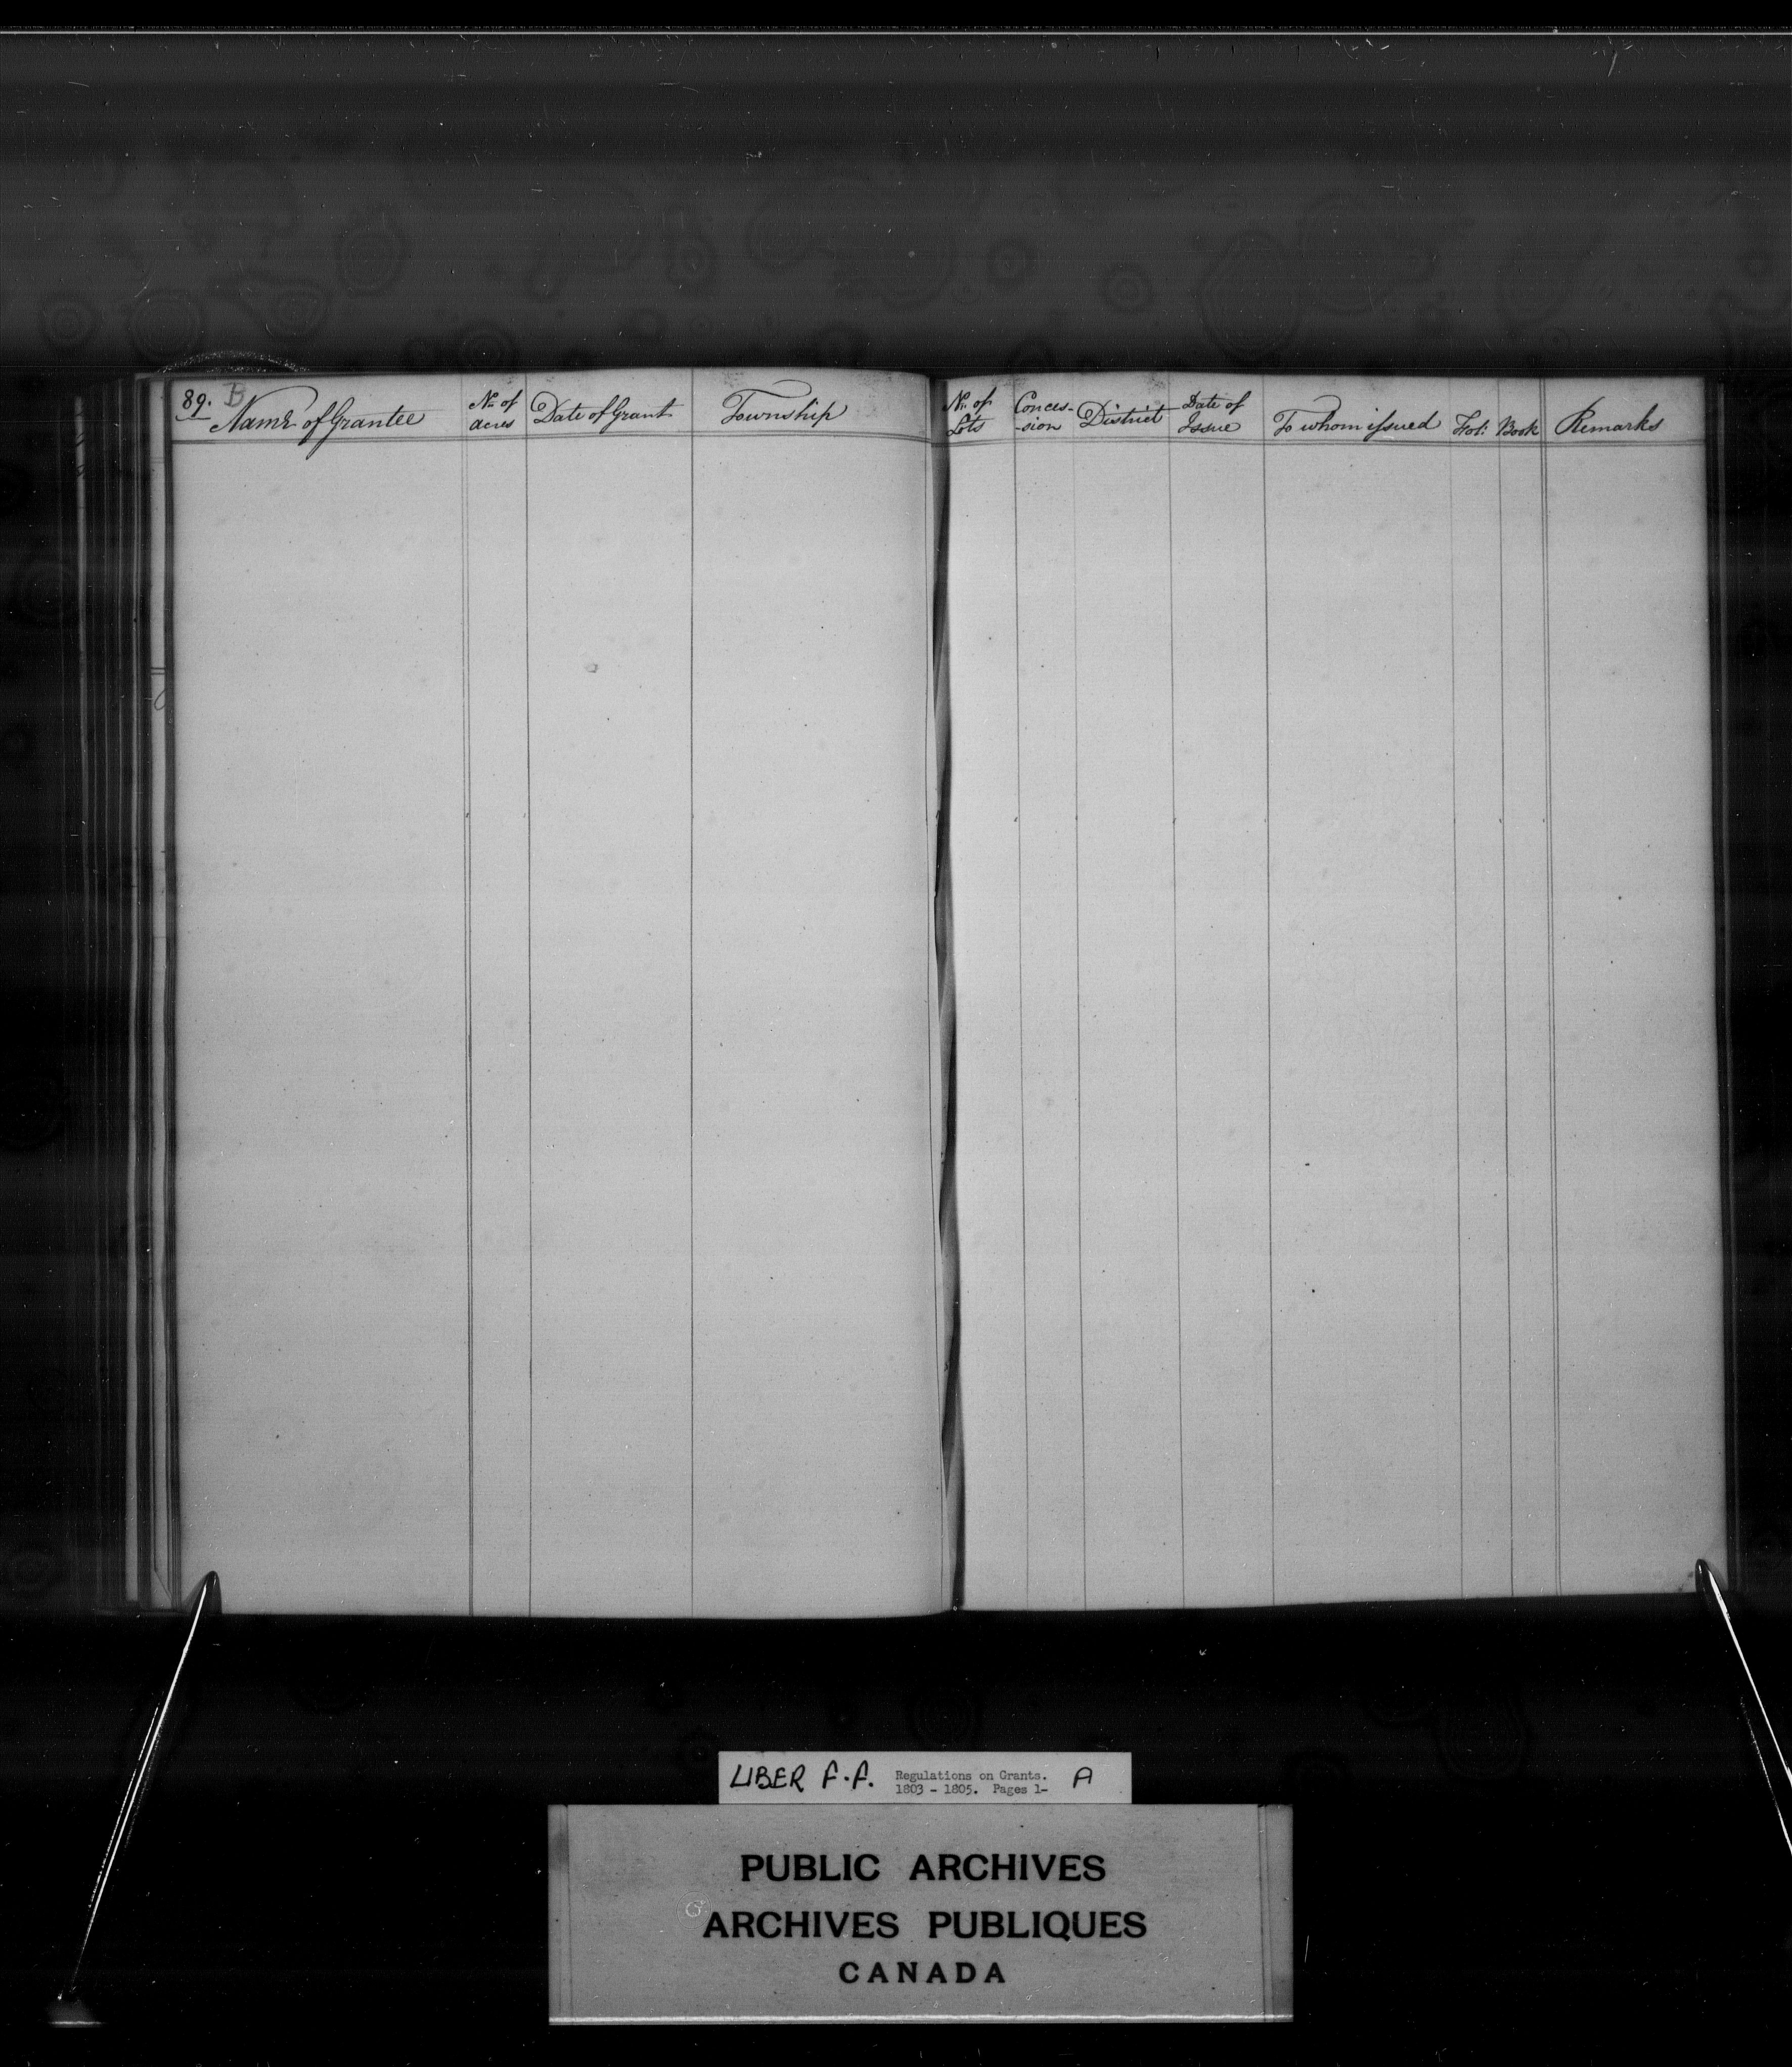 89. B
Name of Grantee
No. of
acres
Date of Grant
Township
No. of
Lots
Conces-
-sion
District
Date of
Issue
To whom issued
Fol:
Book
Remarks
LIBER F.F. Regulations on Grants. A
1803 - 1805. Pages 1-
PUBLIC ARCHIVES
ARCHIVES PUBLIQUES
CANADA